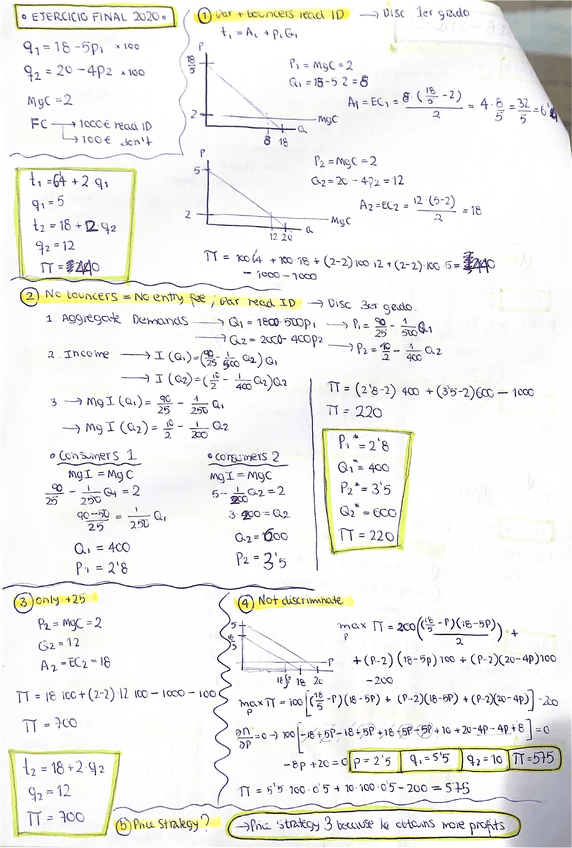 • EJERCICIO FINAL 2020 •
q1 = 18 - 5p1 ×100
q2 = 20 - 4p2 ×100
MgC = 2
FC → 1000€ read ID
→ 100€ don't
t1 = 64 + 2·q1
q1 = 5
t2 = 18 + 2 q2
q2 = 12
Π = 440
① Bar + bouncers read ID → Disc 1er grado
t1 = A1 + p1G1
P
18/5
2
MgC
8 18 Q
P1 = MgC = 2
Q1 = 18 - 5·2 = 8
A1 = EC1 = 8·(18/5 - 2)/2 = 4·8/5 = 32/5 = 6'4
P
5
2
MgC
12 20 Q
P2 = MgC = 2
Q2 = 20 - 4p2 = 12
A2 = EC2 = 12·(5-2)/2 = 18
Π = 100·6'4 + 100·18 + (2-2)100·12 + (2-2)·100·5 = 440
- 1000 - 1000
② No bouncers = No entry fee, bar read ID → Disc 3er grado.
1 Aggregate Demands → Q1 = 1800-500p1 → P1 = 90/25 - 1/500 Q1
→ Q2 = 2000-400p2 → P2 = 10/2 - 1/400 Q2
2. Income → I (Q1) = (90/25 - 1/500 Q1) Q1
→ I (Q2) = (10/2 - 1/400 Q2) Q2
3 → MgI (Q1) = 90/25 - 1/250 Q1
→ MgI (Q2) = 10/2 - 1/200 Q2
• Consumers 1
MgI = MgC
90/25 - 1/250 Q1 = 2
90-50/25 = 1/250 Q1
Q1 = 400
P1 = 2'8
• Consumers 2
MgI = MgC
5 - 1/200 Q2 = 2
3·200 = Q2
Q2 = 600
P2 = 3'5
Π = (2'8-2)·400 + (3'5-2)600 - 1000
Π = 220
P1* = 2'8
Q1* = 400
P2* = 3'5
Q2* = 600
Π = 220
③ Only +25
P2 = MgC = 2
Q2 = 12
A2 = EC2 = 18
Π = 18·100 + (2-2)·12·100 - 1000 - 100
Π = 700
t2 = 18 + 2·q2
q2 = 12
Π = 700
④ Not discriminate
5
18/5
P
18 20
max Π = 200((18/5 - P)(18-5P)/2) +
P
+ (P-2)(18-5p)100 + (P-2)(20-4p)100
- 200
max Π = 100[(18/5 - P)(18-5P) + (P-2)(18-5P) + (P-2)(20-4P)] - 200
P
∂Π/∂P = 0 → 100[-18+5P-18+5P+18-5P-5P+10+20-4P-4P+8] = 0
-8p + 20 = 0 P = 2'5 q1 = 5'5 q2 = 10 Π = 575
Π = 5'5·100·0'5 + 10·100·0'5 - 200 = 575
⑤ Price Strategy? → Price strategy 3 because he obtains more profits